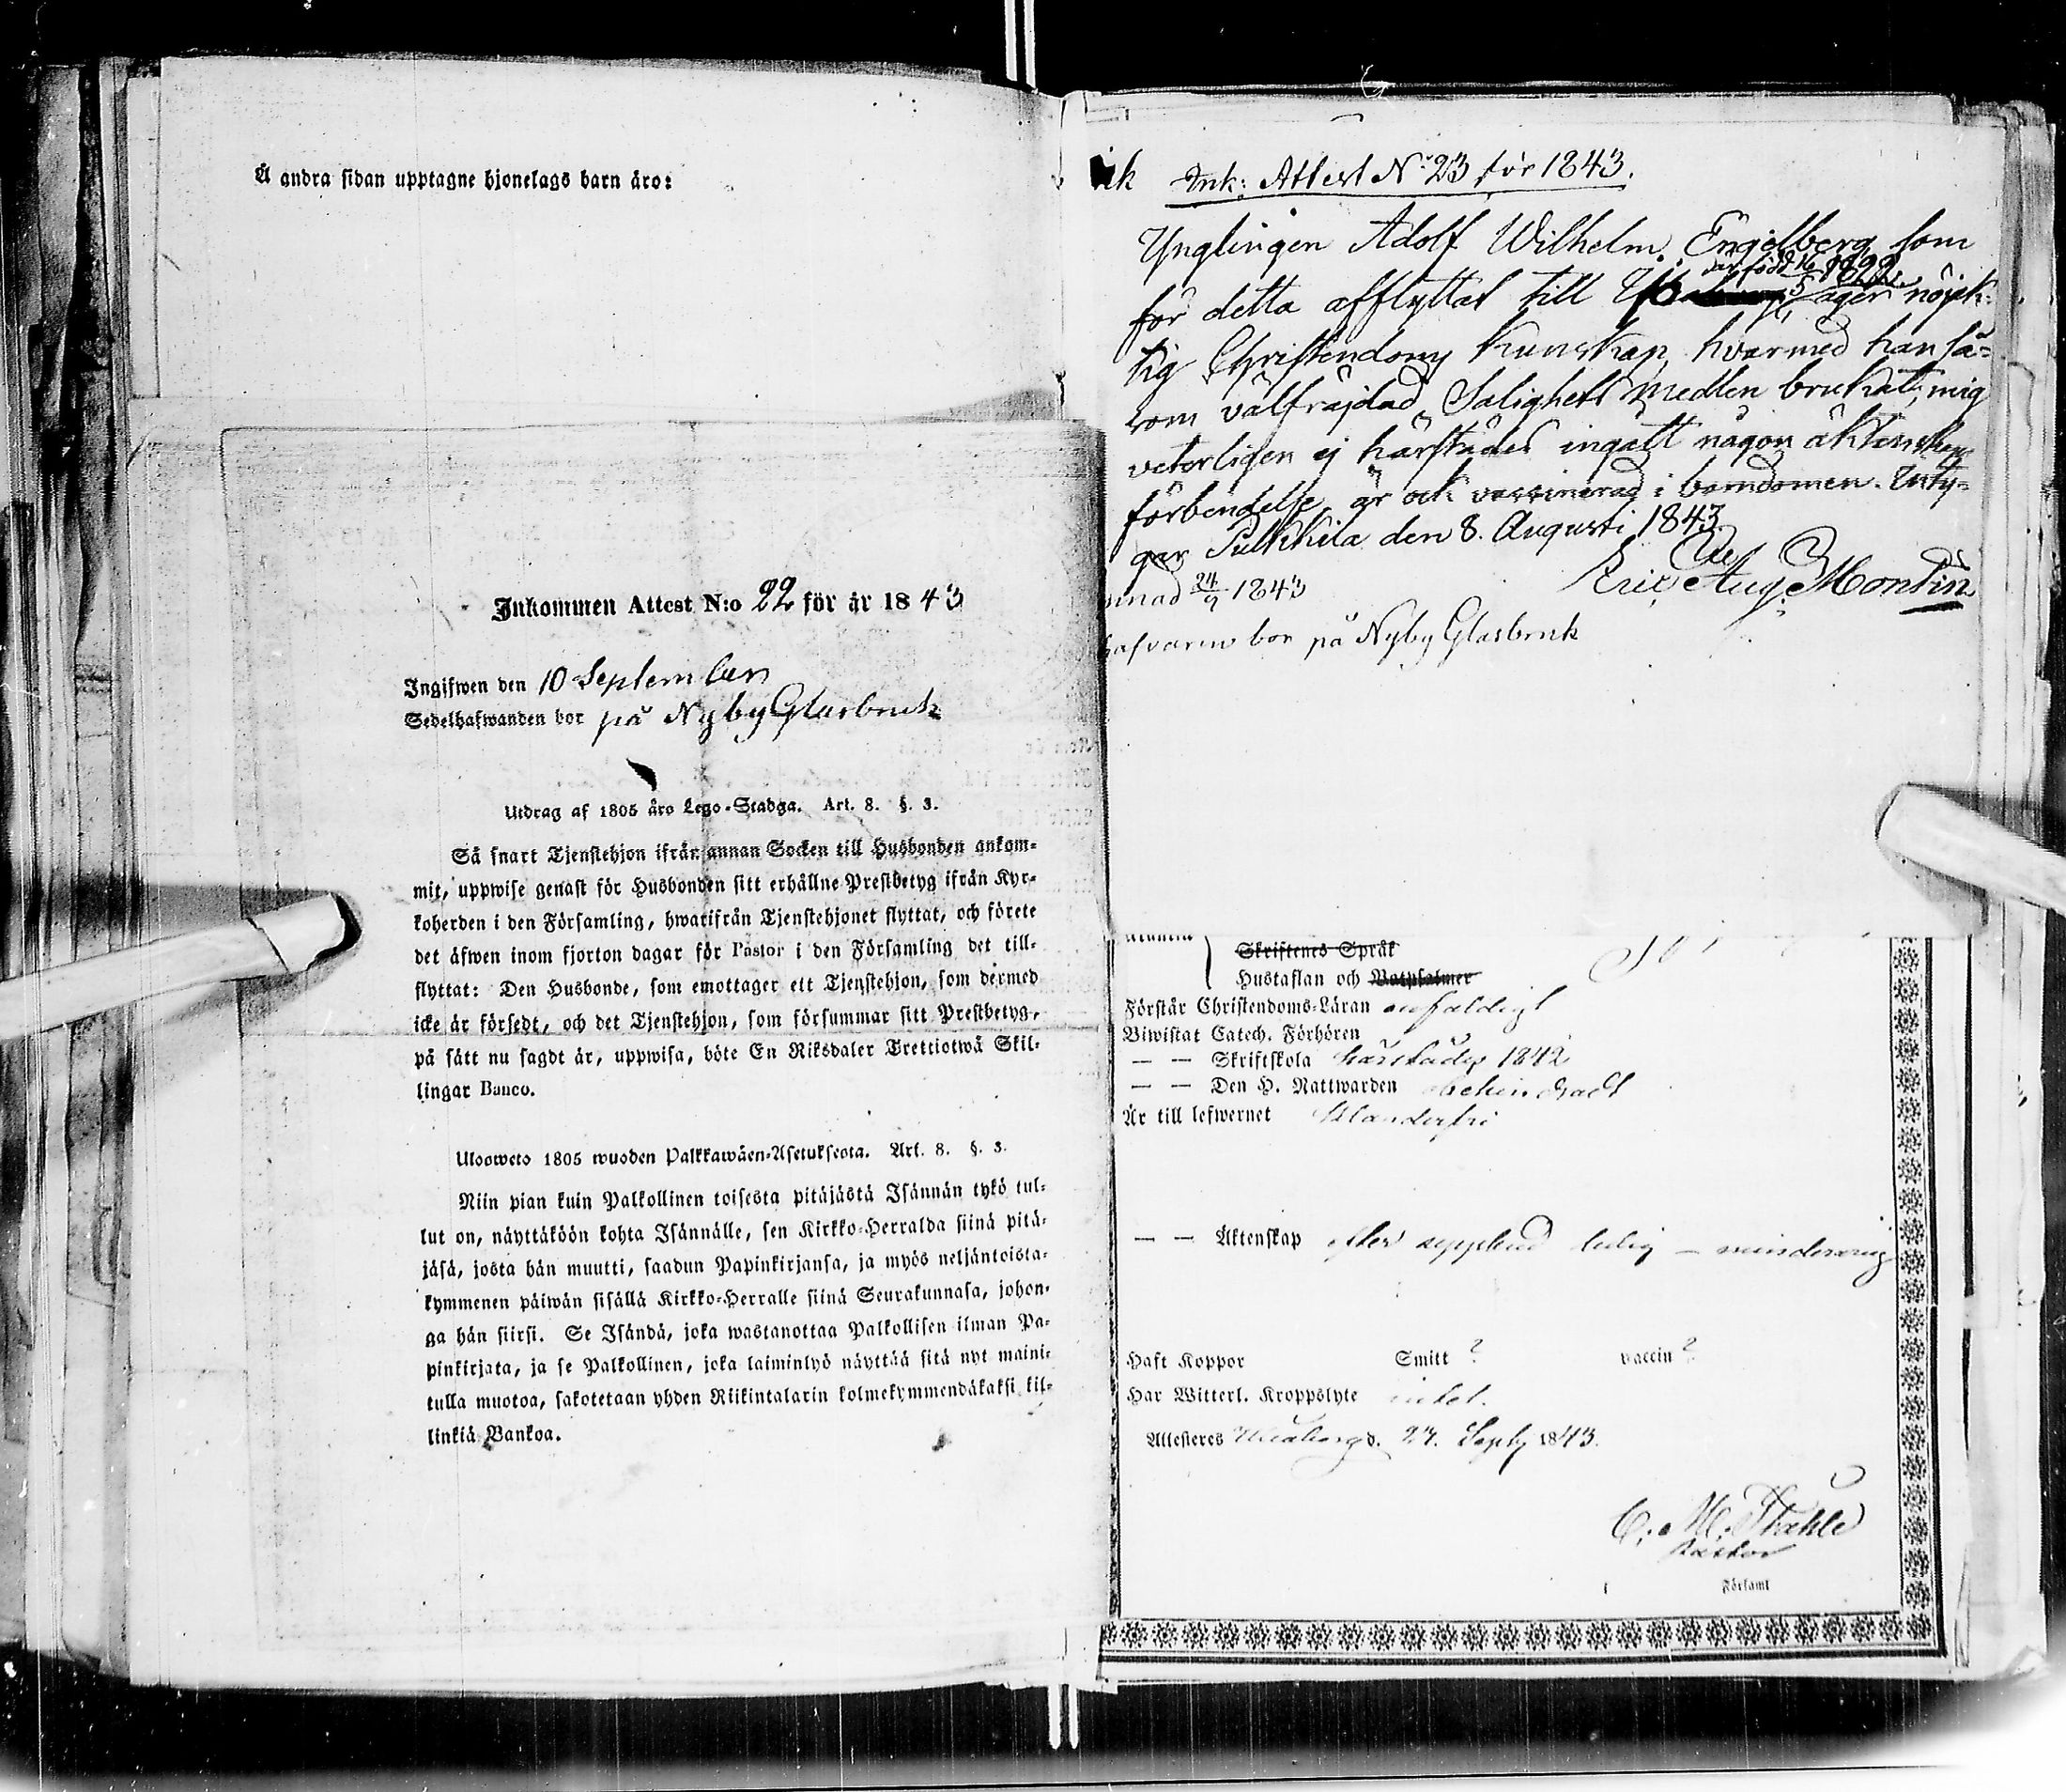 Å andra sidan upptagne hjonelags barn äro:
Inkommen Attest N:o 22 för år 1843
Ingifwen den 10 September
Sedelhafwanden bor på Nyby Glasbruk
Utdrag af 1805 års Lego-Stadga. Art. 8. §. 3.
Så snart Tjenstehjon ifrån annan Socken till Husbonden ankom-
mit, uppwise genast för Husbonden sitt erhållne Prestbetyg ifrån Kyr-
koherden i den Församling, hwarifrån Tjenstehjonet flyttat, och förete
det äfwen inom fjorton dagar för Pastor i den Församling det till-
flyttat: Den Husbonde, som emottager ett Tjenstehjon, som dermed
icke är försedt, och det Tjenstehjon, som försummar sitt Prestbetyg,
på sätt nu sagdt är, uppwisa, böte En Riksdaler Trettiotwå Skil-
lingar Banco.
Ulosweto 1805 wuoden Palkkawäen-Asetuksesta. Art. 8. §. 3.
Niin pian kuin Palkollinen toisesta pitäjästä Isännän tykö tul-
lut on, näyttäköön kohta Isännälle, sen Kirkko-Herralda siinä pitä-
jäsä, josta hän muutti, saadun Papinkirjansa, ja myös neljäntoista-
kymmenen päiwän sisällä Kirkko-Herralle siinä Seurakunnasa, johon-
ga hän siirsi. Se Isändä, joka wastanottaa Palkollisen ilman Pa-
pinkirjata, ja se Palkollinen, joka laiminlyö näyttää sitä nyt maini-
tulla muotoa, sakotetaan yhden Riikintalarin kolmekymmendäkaksi kil-
linkiä Bankoa.
Ink: Attest No 23 för 1843.
Ynglingen Adolf Wilhelm Engelberg som
är född 16/5 1822.
för detta afflyttat till äger nöjak-
tig Christendoms kunskap, hvarmed han så-
som välfräjdad Salighets medlen brukat, mig
veterligen ej härstädes ingått någon äktenskaps
förbindelse, är ock vaccinerad i barndomen. Inty-
gar Pulkkila den 8. Augusti 1843.
Eric Aug. Montin
24/9 1843
bor på Nyby Glasbruk
Skriftenes Språk
Hustaflan och Botpsalmer
Förstår Christendoms-Läran enfaldigt
Biwistat Catech. Förhören
— — Skriftskola härstädes 1842
— — Den H. Nattwarden
Är till lefwernet klanderfri
— — Äktenskap efter uppbud ledig – minderårig
Haft Koppor Smitt ? vaccin ?
Har Witterl. Kroppslyte intet.
Attesteres Uleåborg d. 24. Sept. 1843.
C. M. Ståhle
Pastor
Församl